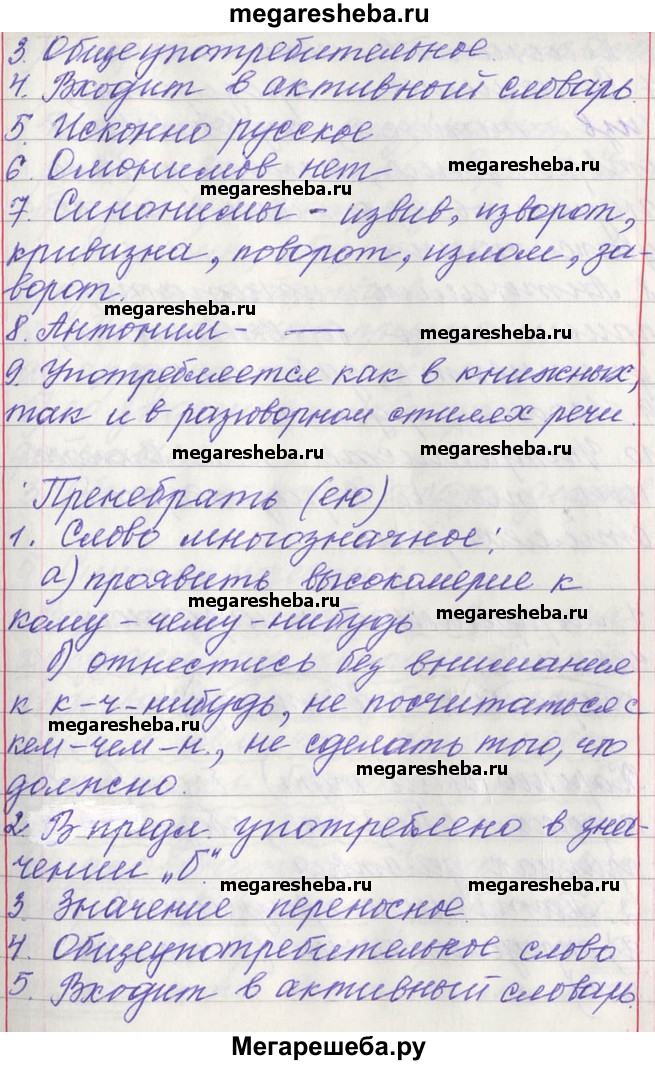 megaresheba.ru
3. Общеупотребительное.
4. Входит в активный словарь.
5. Исконно русское
6. Омонимов нет
megaresheba.ru
megaresheba.ru
7. Синонимы - извив, изворот,
кривизна, поворот, излом, за-
ворот.
megaresheba.ru
8. Антоним - —
megaresheba.ru
9. Употребляется как в книжных,
так и в разговорном стилях речи.
megaresheba.ru
megaresheba.ru
Пренебрать (ею)
1. Слово многозначное:
а) проявить высокомерие к
megaresheba.ru
megaresheba.ru
кому-чему-нибудь
б) отнестись без внимания
к к-ч-нибудь, не посчитаться с
megaresheba.ru
кем-чем-н., не сделать того, что
megaresheba.ru
должно.
2. В предл. употреблено в зна-
megaresheba.ru
чении „б".
megaresheba.ru
megaresheba.ru
3. Значение переносное.
4. Общеупотребительное слово
megaresheba.ru
megaresheba.ru
5. Входит в активный словарь.
Мегарешеба.ру